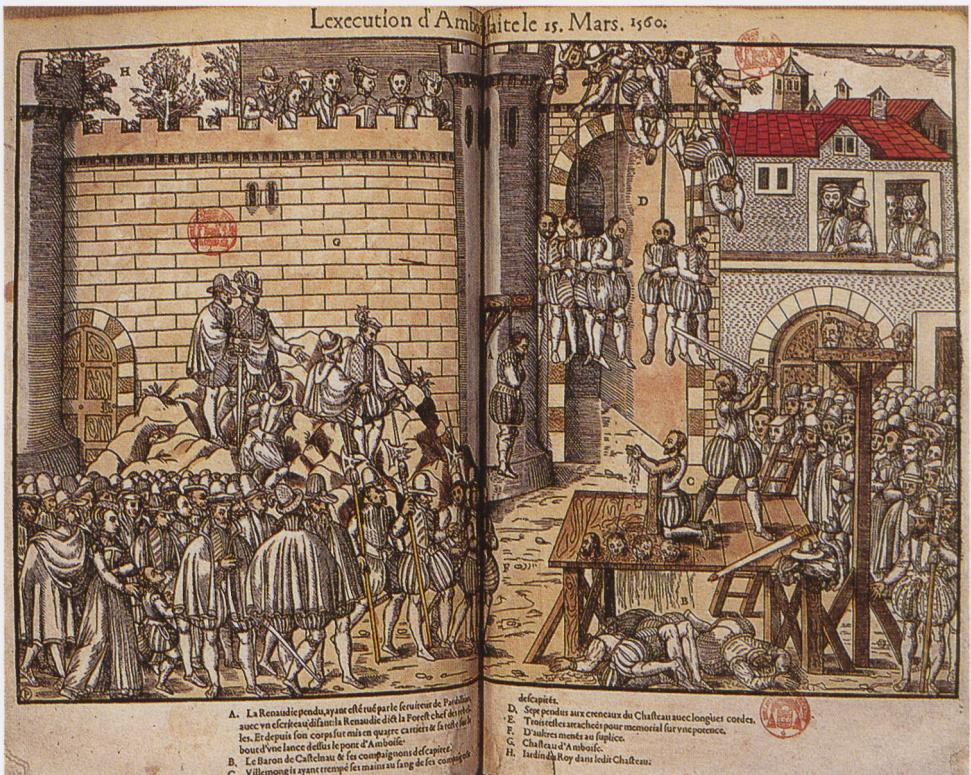 Lexecution d'Ambo faitele 15. Mars. 1560.
H
G
D
C
F
B
A. La Renaudie pendu, ayant esté tué par le seruiteur de Pardillan,
auec vn escriteau disant: la Renaudie dict la Forest chef des rebel-
les. Et depuis son corps fut mis en quatre cartiers & sa teste sur le
bout d'vne lance dessus le pont d'Amboise.
B, Le Baron de Castelnau & ses compaignons descapités.
C, Villemongis ayant trempé ses mains au sang de ses compaignons
descapités.
D, Sept pendus aux creneaux du Chasteau auec longues cordes.
E, Trois testes attachées pour memorial sur vne potence.
F. D'autres menés au suplice.
G. Chasteau d'Amboise.
H. Iardin du Roy dans ledit Chasteau.